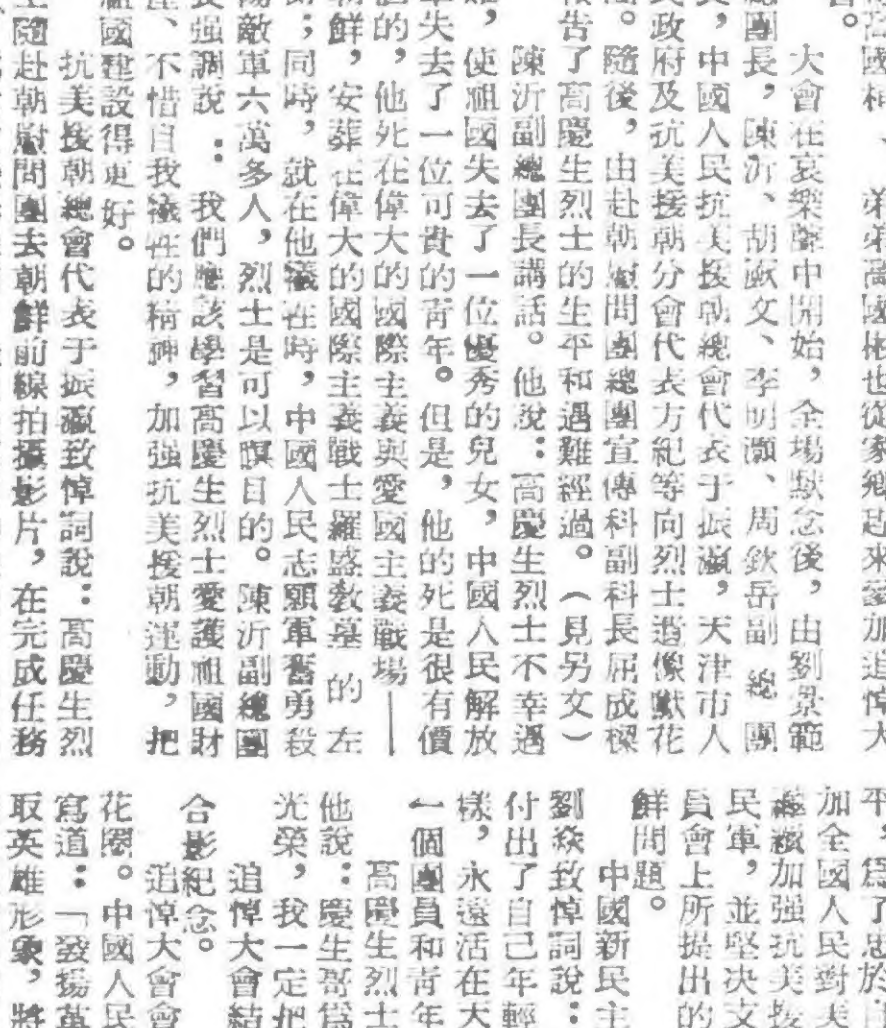 弟弟高國彬也從家鄉趕來參加追悼大
會。
大會在哀樂聲中開始,全場默念後,由劉景範
總團長,陳沂、胡厥文、李明灝、周欽岳副總團
長,中國人民抗美援朝總會代表于振瀛,天津市人
民政府及抗美援朝分會代表方紀等向烈士遺像獻花
圈。隨後,由赴朝慰問團總團宣傳科副科長屈成樑
報告了高慶生烈士的生平和遇難經過。(見另文)
陳沂副總團長講話。他說:高慶生烈士不幸遇
難,使祖國失去了一位優秀的兒女,中國人民解放
軍失去了一位可貴的青年。但是,他的死是很有價
值的,他死在偉大的國際主義與愛國主義戰場——
朝鮮,安葬在偉大的國際主義戰士羅盛教墓的左
側;同時,就在他犧牲時,中國人民志願軍奮勇殺
傷敵軍六萬多人,烈士是可以瞑目的。陳沂副總團
長强調說:我們應該學習高慶生烈士愛護祖國財
產、不惜自我犧牲的精神,加强抗美援朝運動,把
祖國建設得更好。
抗美援朝總會代表于振瀛致悼詞說:高慶生烈
士隨赴朝慰問團去朝鮮前線拍攝影片,在完成任務
平,爲了忠於
加全國人民對美
繼續加强抗美援
民軍,並堅决支
員會上所提出的
鮮問題。
中國新民主
劉焱致悼詞說:
付出了自己年輕
樣,永遠活在大
一個團員和青年
高慶生烈士
他說:慶生哥爲
光榮,我一定把
追悼大會結
合影紀念。
追悼大會會
花圈。中國人民
寫道:「發揚革
取英雄形象,將